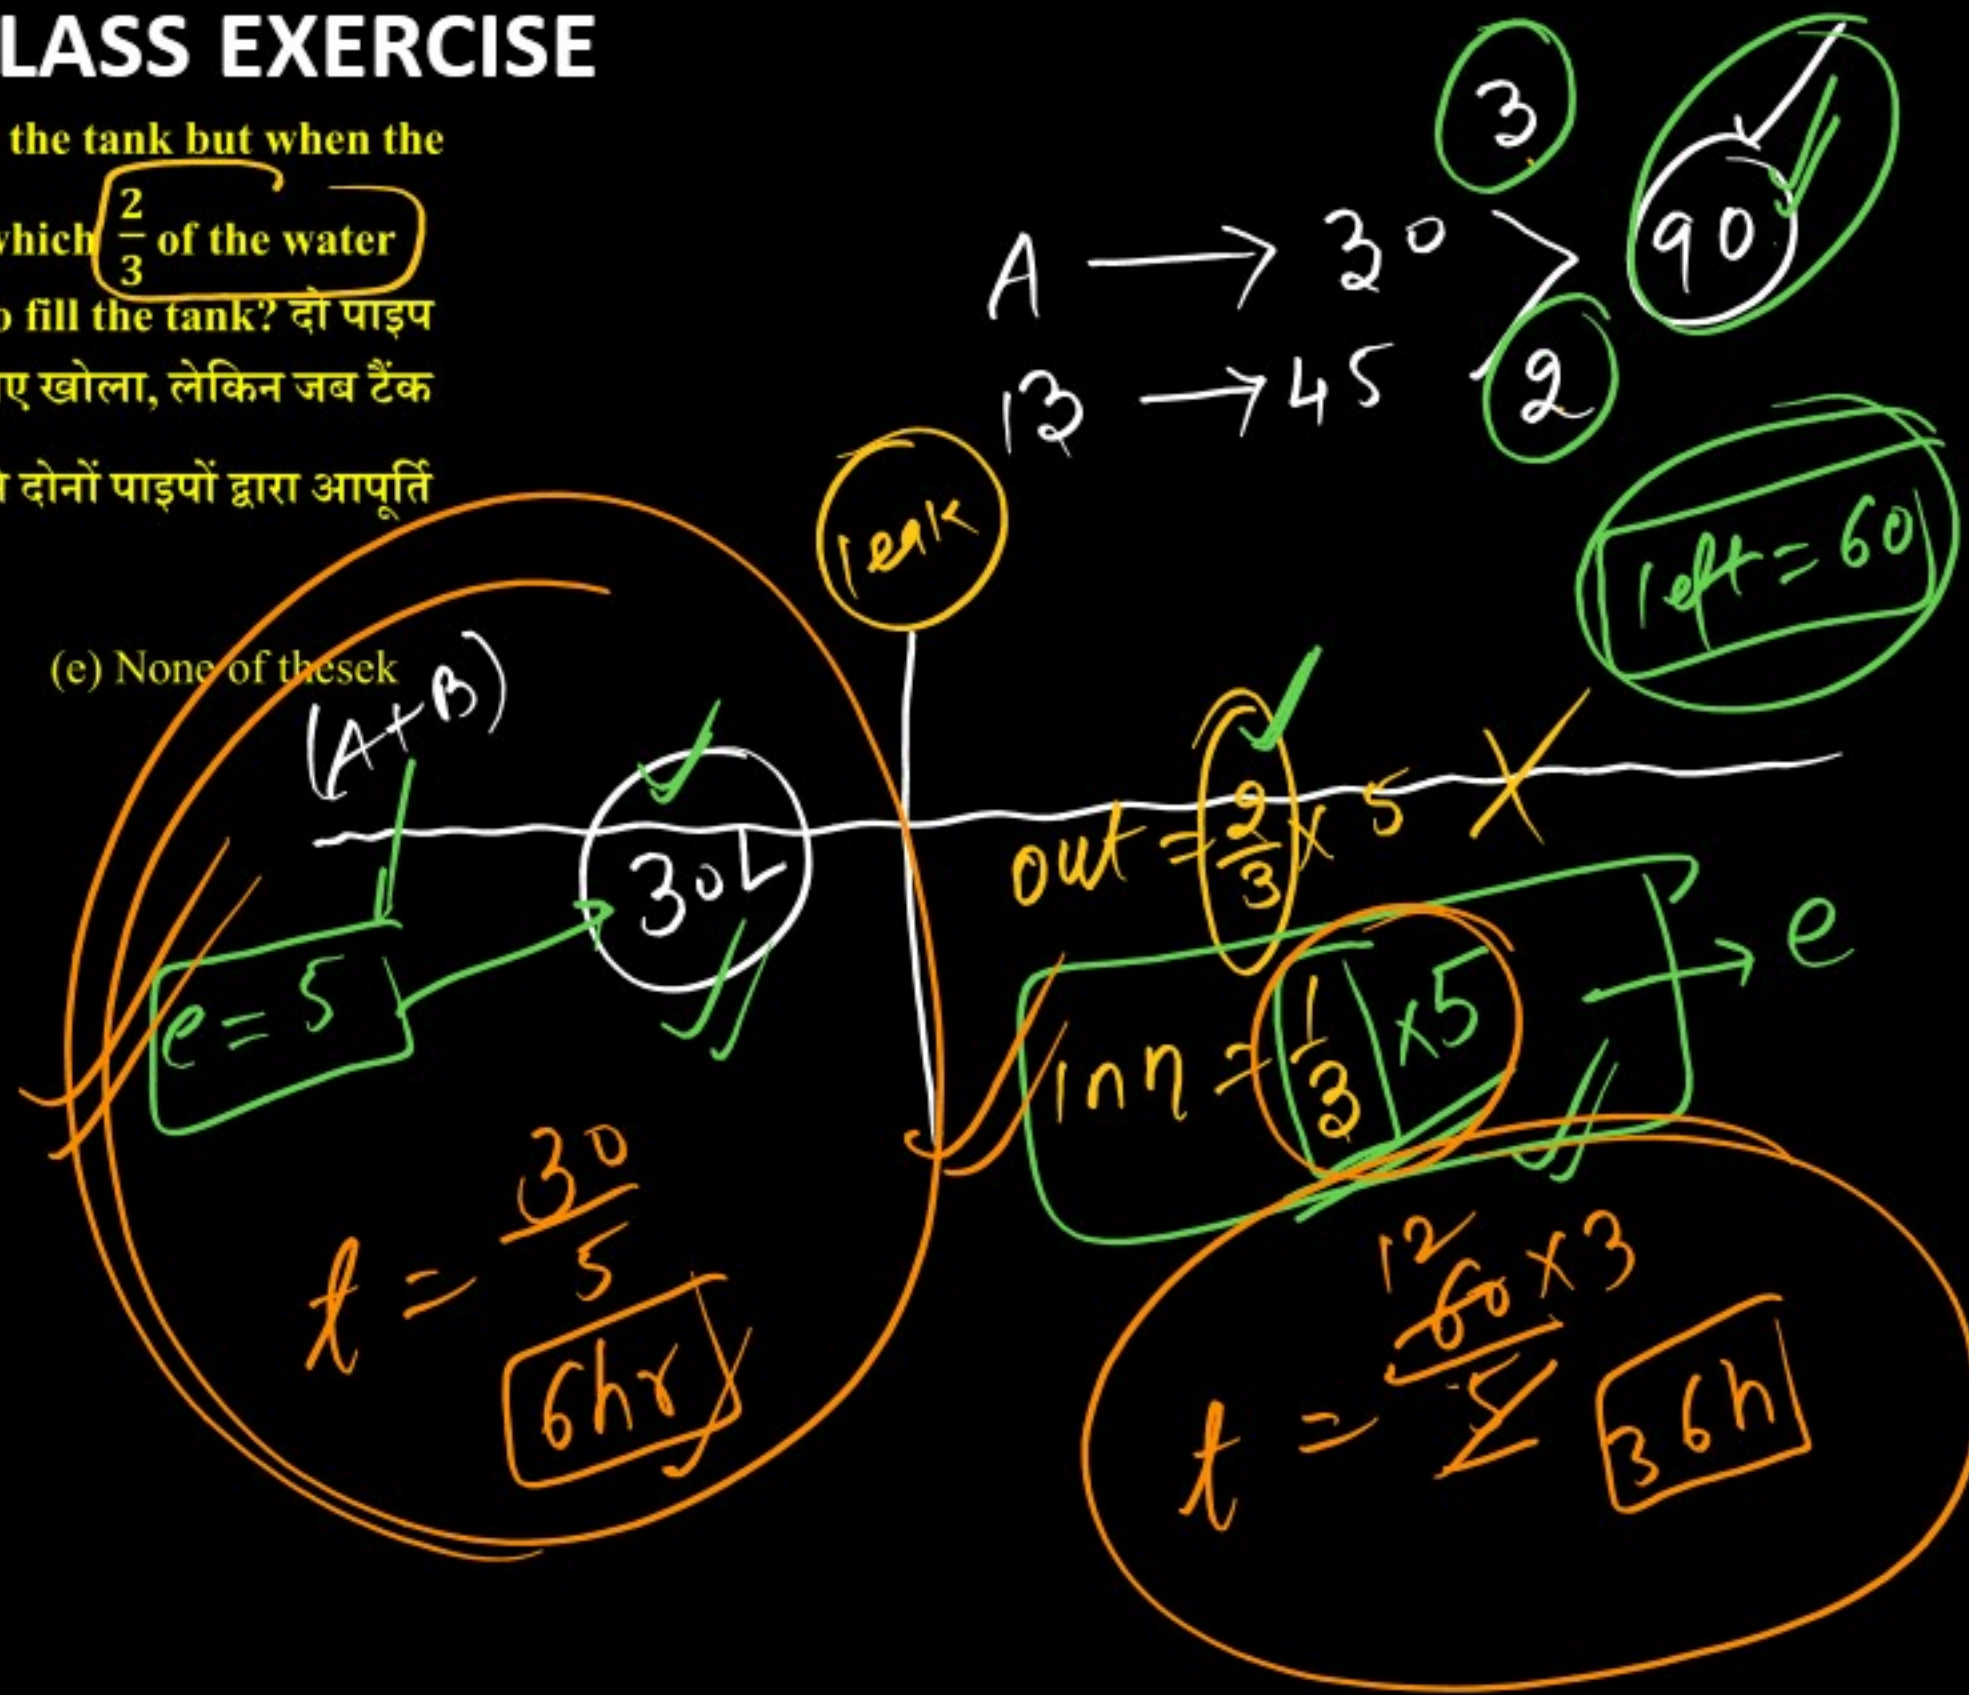 LASS EXERCISE
the tank but when the
which 2/3 of the water
o fill the tank? दो पाइप
ए खोला, लेकिन जब टैंक
दोनों पाइपों द्वारा आपूर्ति
(e) None of thesek
3
A → 30
90
B → 45
2
leak
left = 60
(A+B)
30L
out = 2/3 × 5
e = 5
inn = 1/3 × 5 → e
t = 30/5
6hr
12
t = 60×3/5
36h